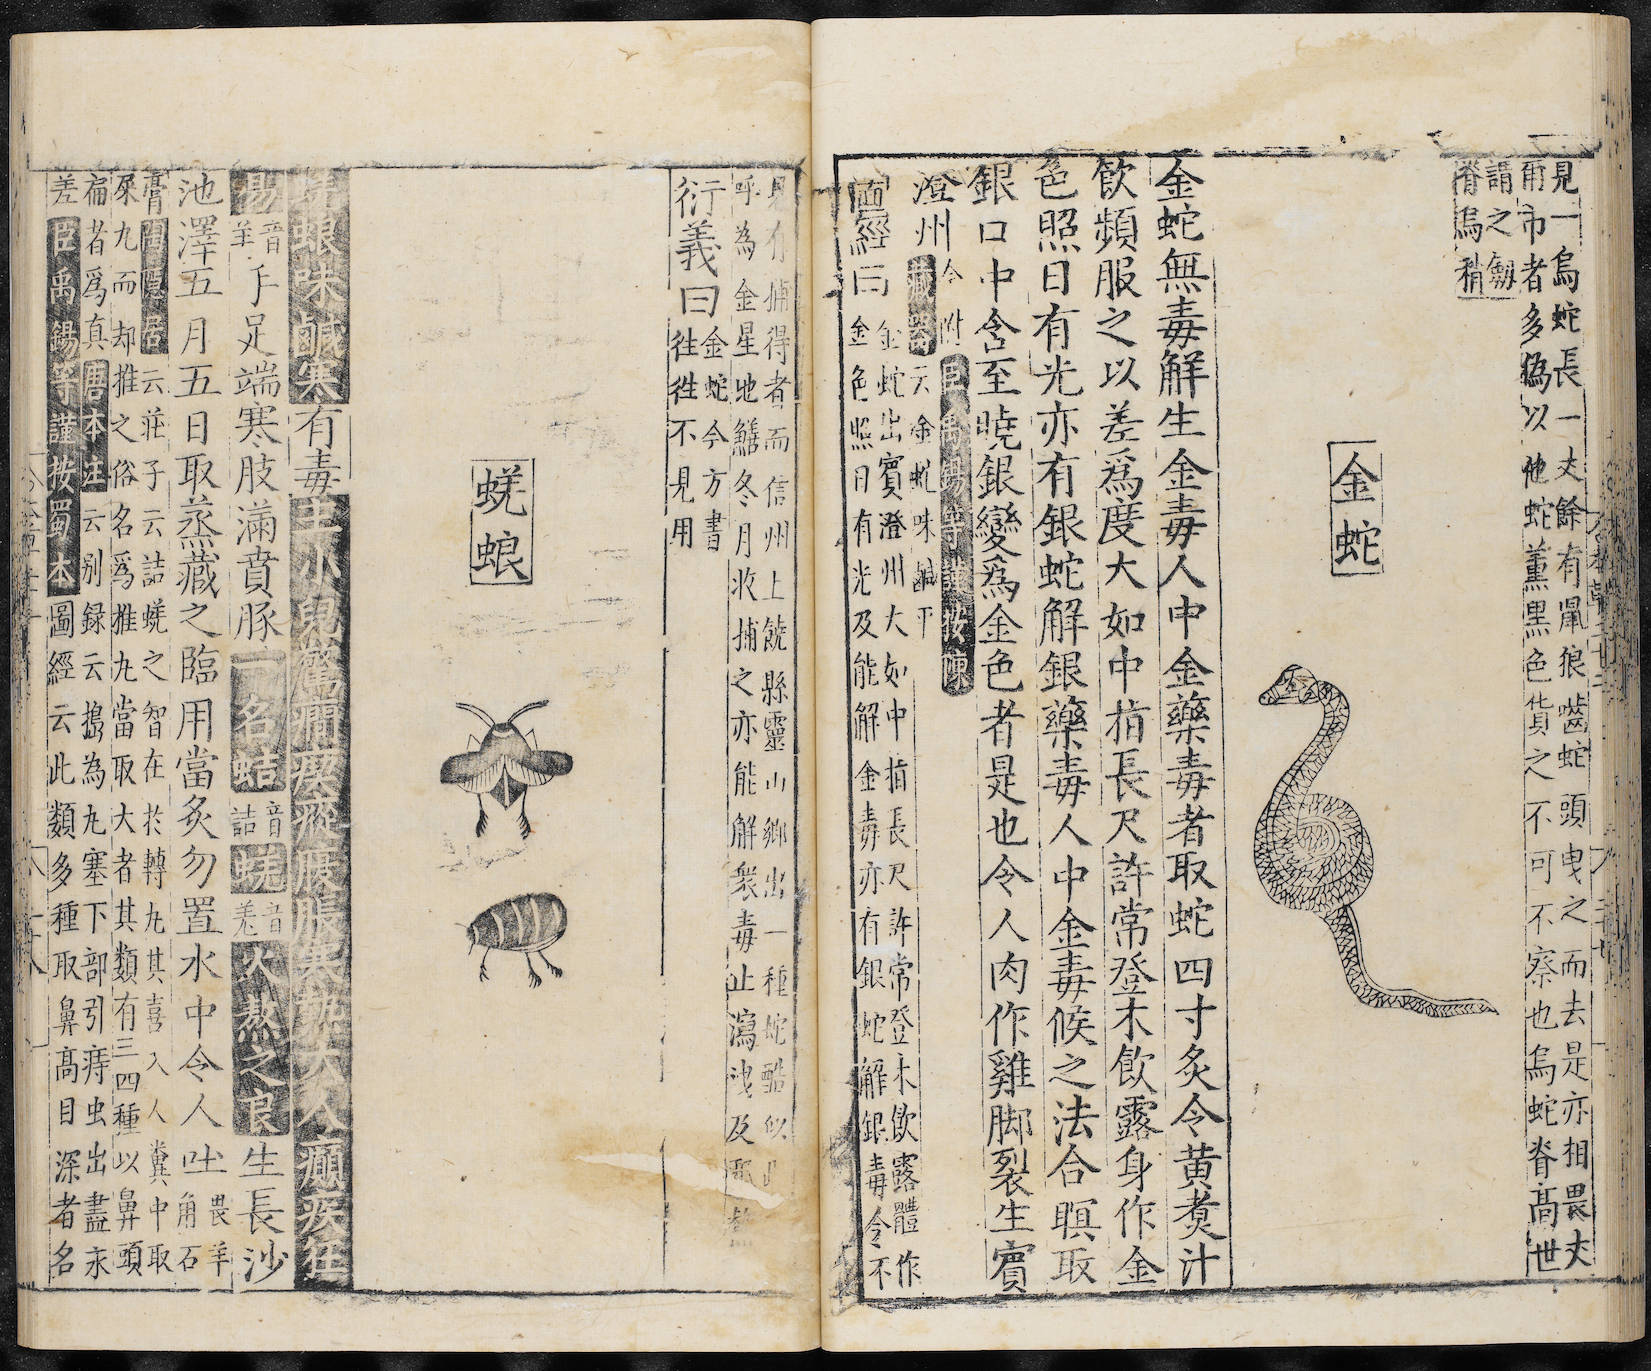 見一烏蛇長一丈餘有鼠狼嚙蛇頭曳之而去是亦相畏丈
爾市者多偽以他蛇薰黑色貨之不可不察也烏蛇脊高世
謂之劔
脊烏稍
金蛇
金蛇無毒解生金毒人中金藥毒者取蛇四寸炙令黄煑汁
飲頻服之以差爲度大如中指長尺許常登木飲露身作金
色照日有光亦有銀蛇解銀藥毒人中金毒候之法合瞑取
銀口中含至曉銀變爲金色者是也令人肉作雞脚裂生賓
澄州今附臣禹錫等謹按陳
藏器云金蛇味鹹平
圖經曰金蛇出賓澄州大如中指長尺許常登木飲露體作
金色照日有光及能解金毒亦有銀蛇解銀毒今不
見有捕得者而信州上饒縣靈山鄉出一種蛇酷似此
呼為金星地鱔冬月收捕之亦能解衆毒止瀉洩及邪熱
衍義曰金蛇今方書
往往不見用
蜣蜋
蜣蜋味鹹寒有毒主小兒驚癎瘈瘲腹脹寒熱大人癲疾狂
易音羊手足端寒肢滿賁豚一名蛣音詰蜣音羌火熬之良生長沙
池澤五月五日取蒸藏之臨用當炙勿置水中令人吐畏羊角石
膏陶隱居云莊子云詰蜣之智在於轉丸其喜入人糞中取
屎丸而却推之俗名爲推丸當取大者其類有三四種以鼻頭
扁者爲真唐本注云别録云搗為丸塞下部引痔虫出盡永
差臣禹錫等謹按蜀本圖經云此類多種取鼻高目深者名